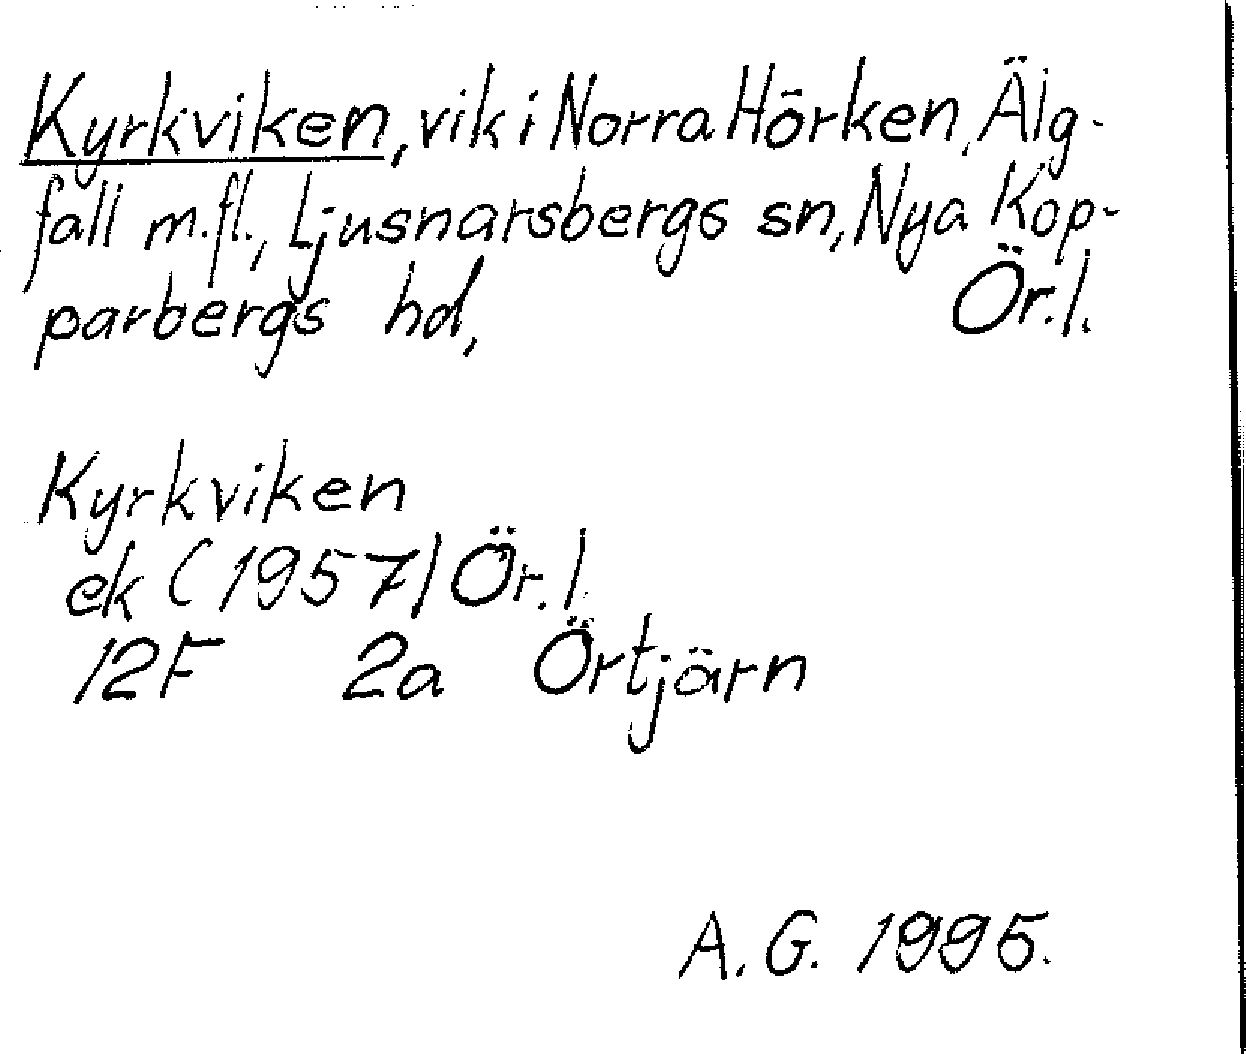 Kyrkviken, vik i Norra Hörken, Älg-
fall m.fl., Ljusnarsbergs sn, Nya Kop-
parbergs hd, Ör.l.
Kyrkviken
ek (1957) Ör.l.
12F 2a Örtjärn
A.G. 1995.